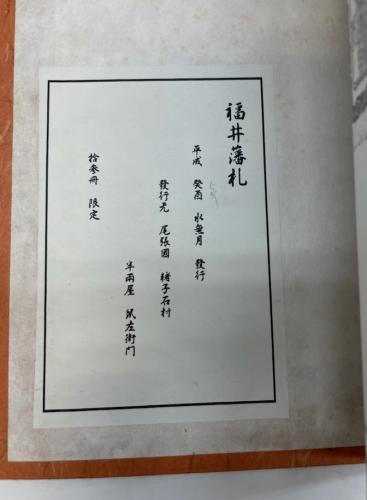 福井藩札
平成 癸酉 水無月 發行
發行元 尾張國 猪子石村
半兩屋 鼠左衛門
拾参冊 限定